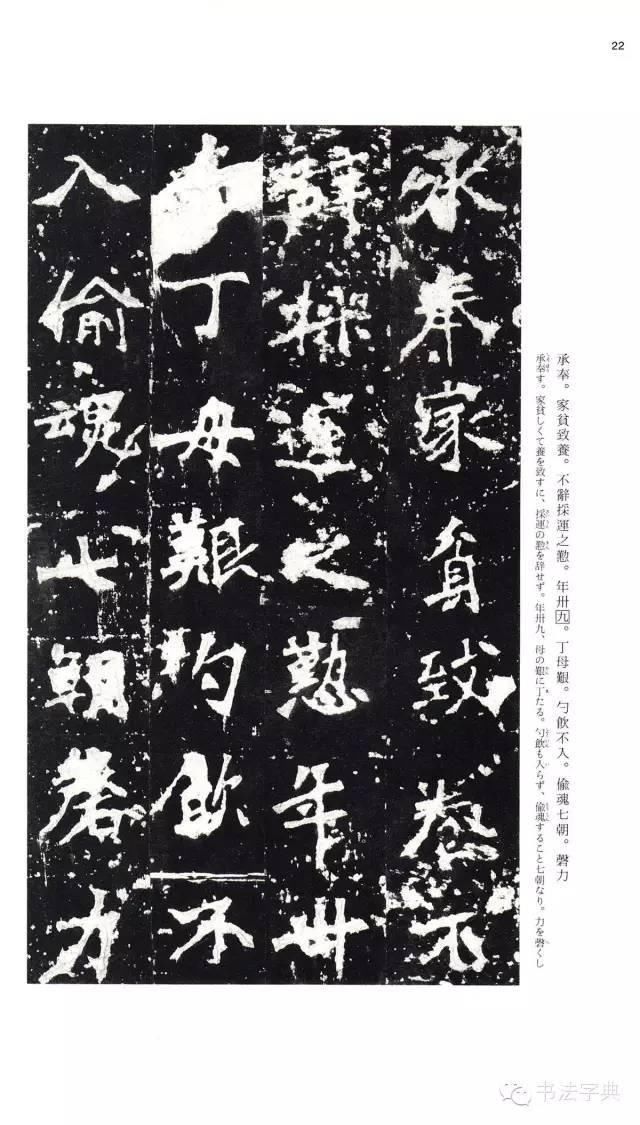 22
承奉。家貧致養。不辭採運之懃。年卌九。丁母艱。勺飮不入。偷魂七朝。磬力
承奉す。家貧しくて養を致すに、採運の懃を辞せず。年卌九、母の艱に丁たる。勺飮も入らず、偷魂すること七朝なり。力を磬くし
承奉家貧致養不
辭採運之懃年卌
丁母艱勺飮不
入偷魂七朝磬力
书法字典